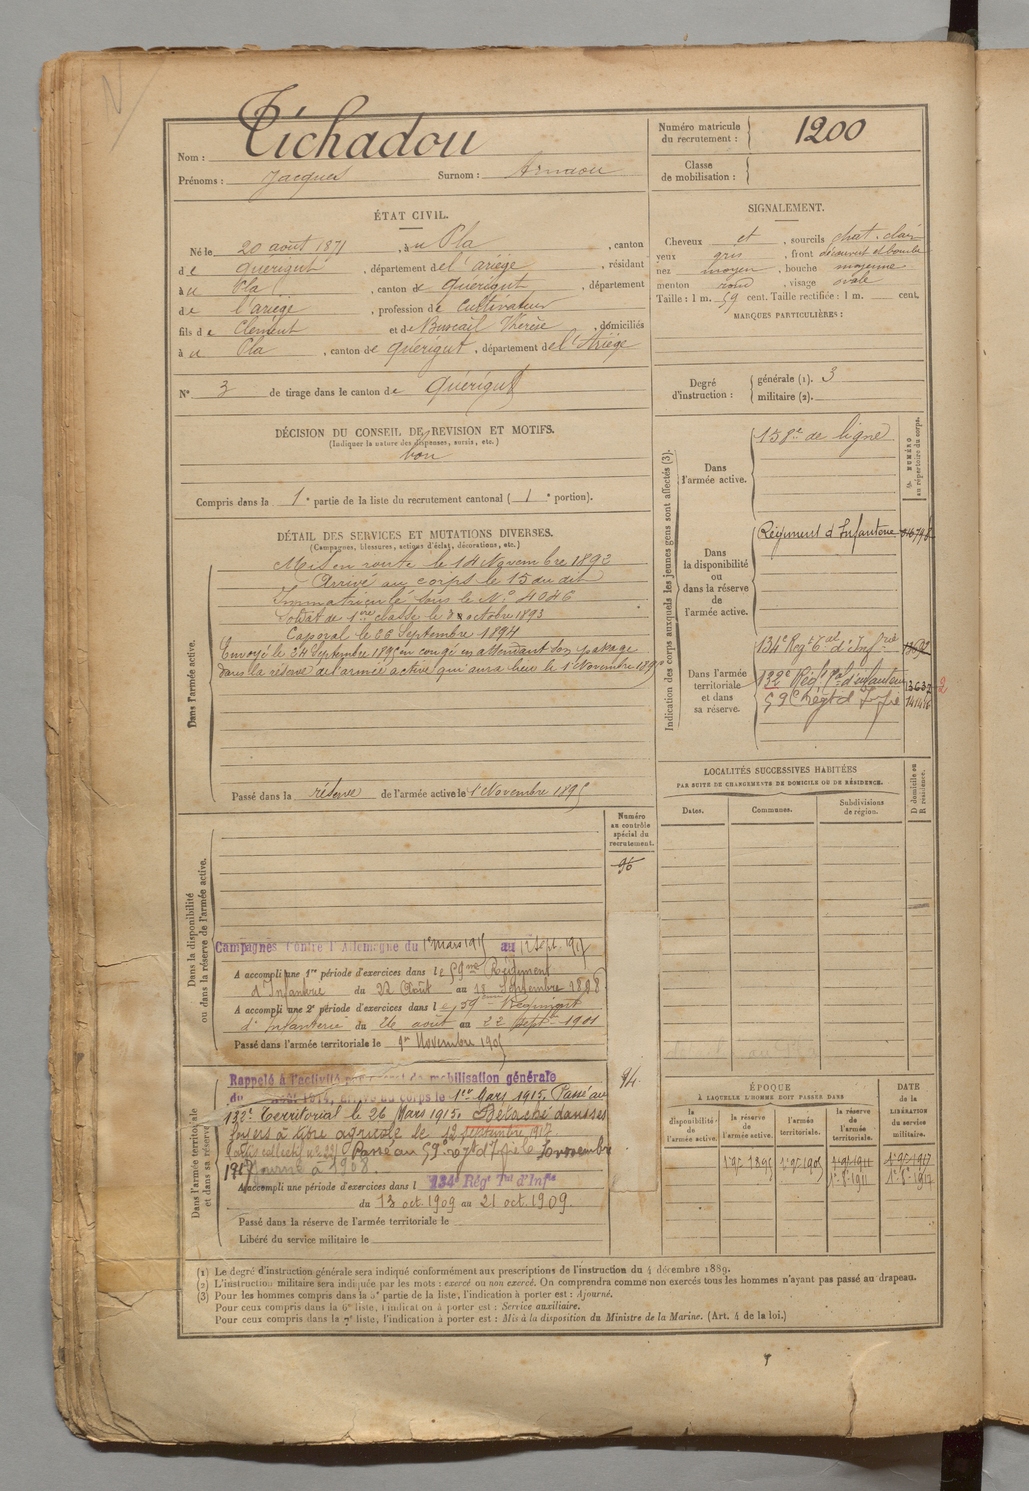 Nom : Tichadou
Prénoms : Jacques Surnom : Arnaou
Numéro matricule du recrutement : 1200
Classe de mobilisation :
ÉTAT CIVIL.
Né le 20 août 1871, à u Pla, canton
de Quérigut, département de l'ariège, résidant
à u Pla, canton de Quérigut, département
de l'ariège, profession de cultivateur
fils de Clément et de Buscail Thérèse, domiciliés
à u Pla, canton de Quérigut, département de l'Ariège
N° 3 de tirage dans le canton de Quérigut
SIGNALEMENT.
Cheveux et, sourcils chat. clair
yeux gris, front découvert et bombé
nez moyen, bouche moyenne
menton rond, visage ovale
Taille : 1 m. 59 cent. Taille rectifiée : 1 m. cent.
MARQUES PARTICULIÈRES :
Degré d'instruction : générale (1). 3
militaire (2).
DÉCISION DU CONSEIL DE REVISION ET MOTIFS.
(Indiquer la nature des dispenses, sursis, etc.)
bon
Compris dans la 1e partie de la liste du recrutement cantonal (1e portion).
DÉTAIL DES SERVICES ET MUTATIONS DIVERSES.
(Campagnes, blessures, actions d'éclat, décorations, etc.)
Dans l'armée active.
Mis en route le 14 Novembre 1892
Arrivé au corps le 15 du dit
Immatriculé sous le N° 4046
Soldat de 1ère classe le 8 octobre 1893
Caporal le 26 Septembre 1894
Envoyé le 24 Septembre 1895 en congé en attendant son passage
dans la réserve de l'armée active qui aura lieu le 1er Novembre 1895
Passé dans la réserve de l'armée active le 1er Novembre 1895
Indication des corps auxquels les jeunes gens sont affectés (3).
NUMÉRO au répertoire du corps.
Dans l'armée active. 158e de ligne
Dans la disponibilité ou dans la réserve de l'armée active.
Régiment d'Infanterie
Dans l'armée territoriale et dans sa réserve.
134e Régt Tal d'Infrie
132e Régt Tal d'infanterie
59e Régt d'Infie
LOCALITÉS SUCCESSIVES HABITÉES
PAR SUITE DE CHANGEMENTS DE DOMICILE OU DE RÉSIDENCE.
D domicile ou R résidence.
Dates. Communes. Subdivisions de région.
Numéro au contrôle spécial du recrutement.
96
Dans la disponibilité ou dans la réserve de l'armée active.
Campagnes Contre l'Allemagne du 1er mars 1915 au 12 Sept. 1917
A accompli une 1re période d'exercices dans le 59me Régiment
d'Infanterie du 22 Août au 18 Septembre 1898
A accompli une 2e période d'exercices dans le 59ème Régiment
d'Infanterie du 26 août au 22 Sept. 1901
Passé dans l'armée territoriale le 1er Novembre 1905
94
Dans l'armée territoriale et dans sa réserve
Rappelé à l'activité mobilisation générale
du août 1914, au corps le 1er Mars 1915. Passé au
132e Territorial le 26 Mars 1915. Détaché dans ses
foyers à titre agricole le 12 septembre 1917
Passé au 59e régt d'Infie le novembre
1917 Ajourné à 1908
A accompli une période d'exercices dans l 134e Régt Tal d'Infie
du 13 oct 1909 au 21 oct. 1909.
Passé dans la réserve de l'armée territoriale le
Libéré du service militaire le
ÉPOQUE
À LAQUELLE L'HOMME DOIT PASSER DANS
DATE de la LIBÉRATION DU service militaire.
la disponibilité de l'armée active. la réserve de l'armée active. l'armée territoriale. la réserve de l'armée territoriale.
1er 9bre 1895 1er 9bre 1905 1er 9bre 1911 1er 9bre 1917
1er 8bre 1911 1er 8bre 1917
(1) Le degré d'instruction générale sera indiqué conformément aux prescriptions de l'instruction du 4 décembre 1889.
(2) L'instruction militaire sera indiquée par les mots : exercé ou non exercé. On comprendra comme non exercés tous les hommes n'ayant pas passé au drapeau.
(3) Pour les hommes compris dans la 5e partie de la liste, l'indication à porter est : Ajourné.
Pour ceux compris dans la 6e liste, l'indication à porter est : Service auxiliaire.
Pour ceux compris dans la 7e liste, l'indication à porter est : Mis à la disposition du Ministre de la Marine. (Art. 4 de la loi.)